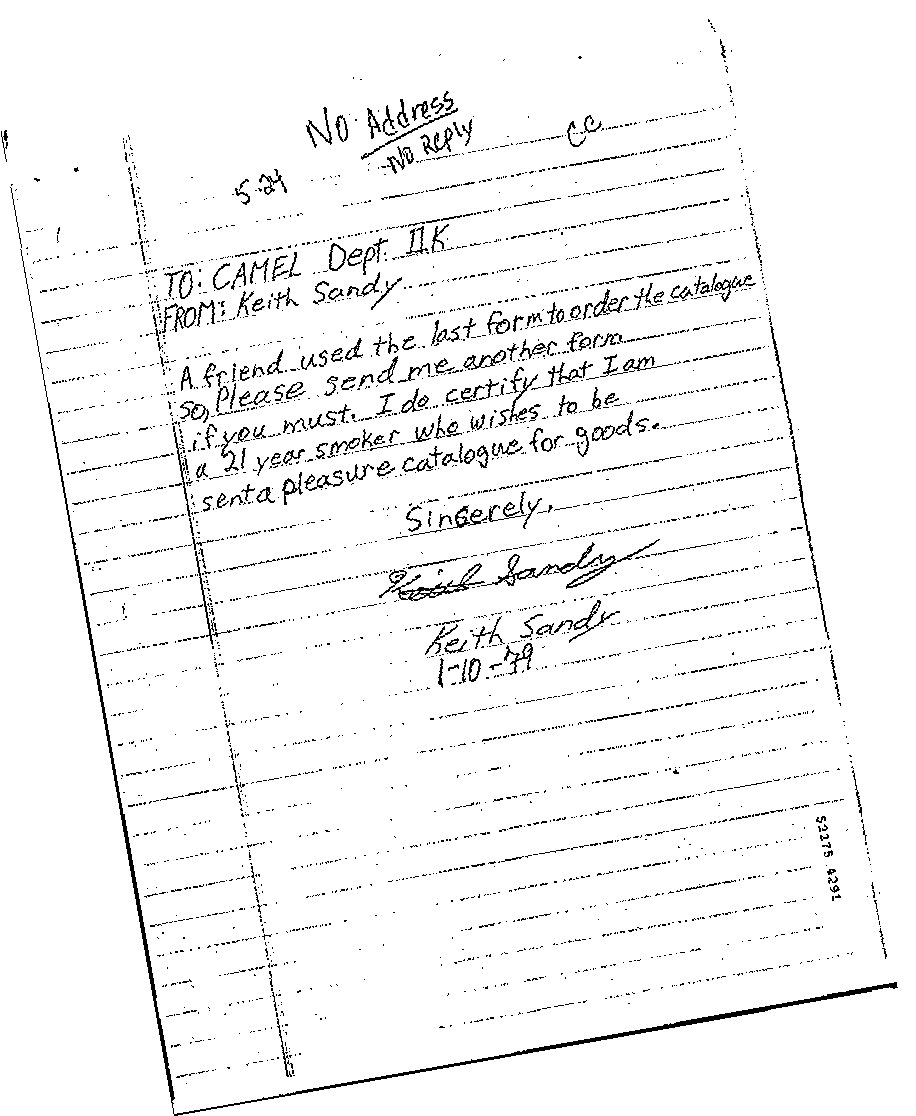 No Address
No Reply
CC
5-24
TO: CAMEL Dept. IIK
FROM: Keith Sandy
A friend used the last form to order the catalogue
so, Please send me another form
if you must. I do certify that I am
a 21 year smoker who wishes to be
sent a pleasure catalogue for goods.
Sincerely,
Keith Sandy
Keith Sandy
1-10-79
52175 4291